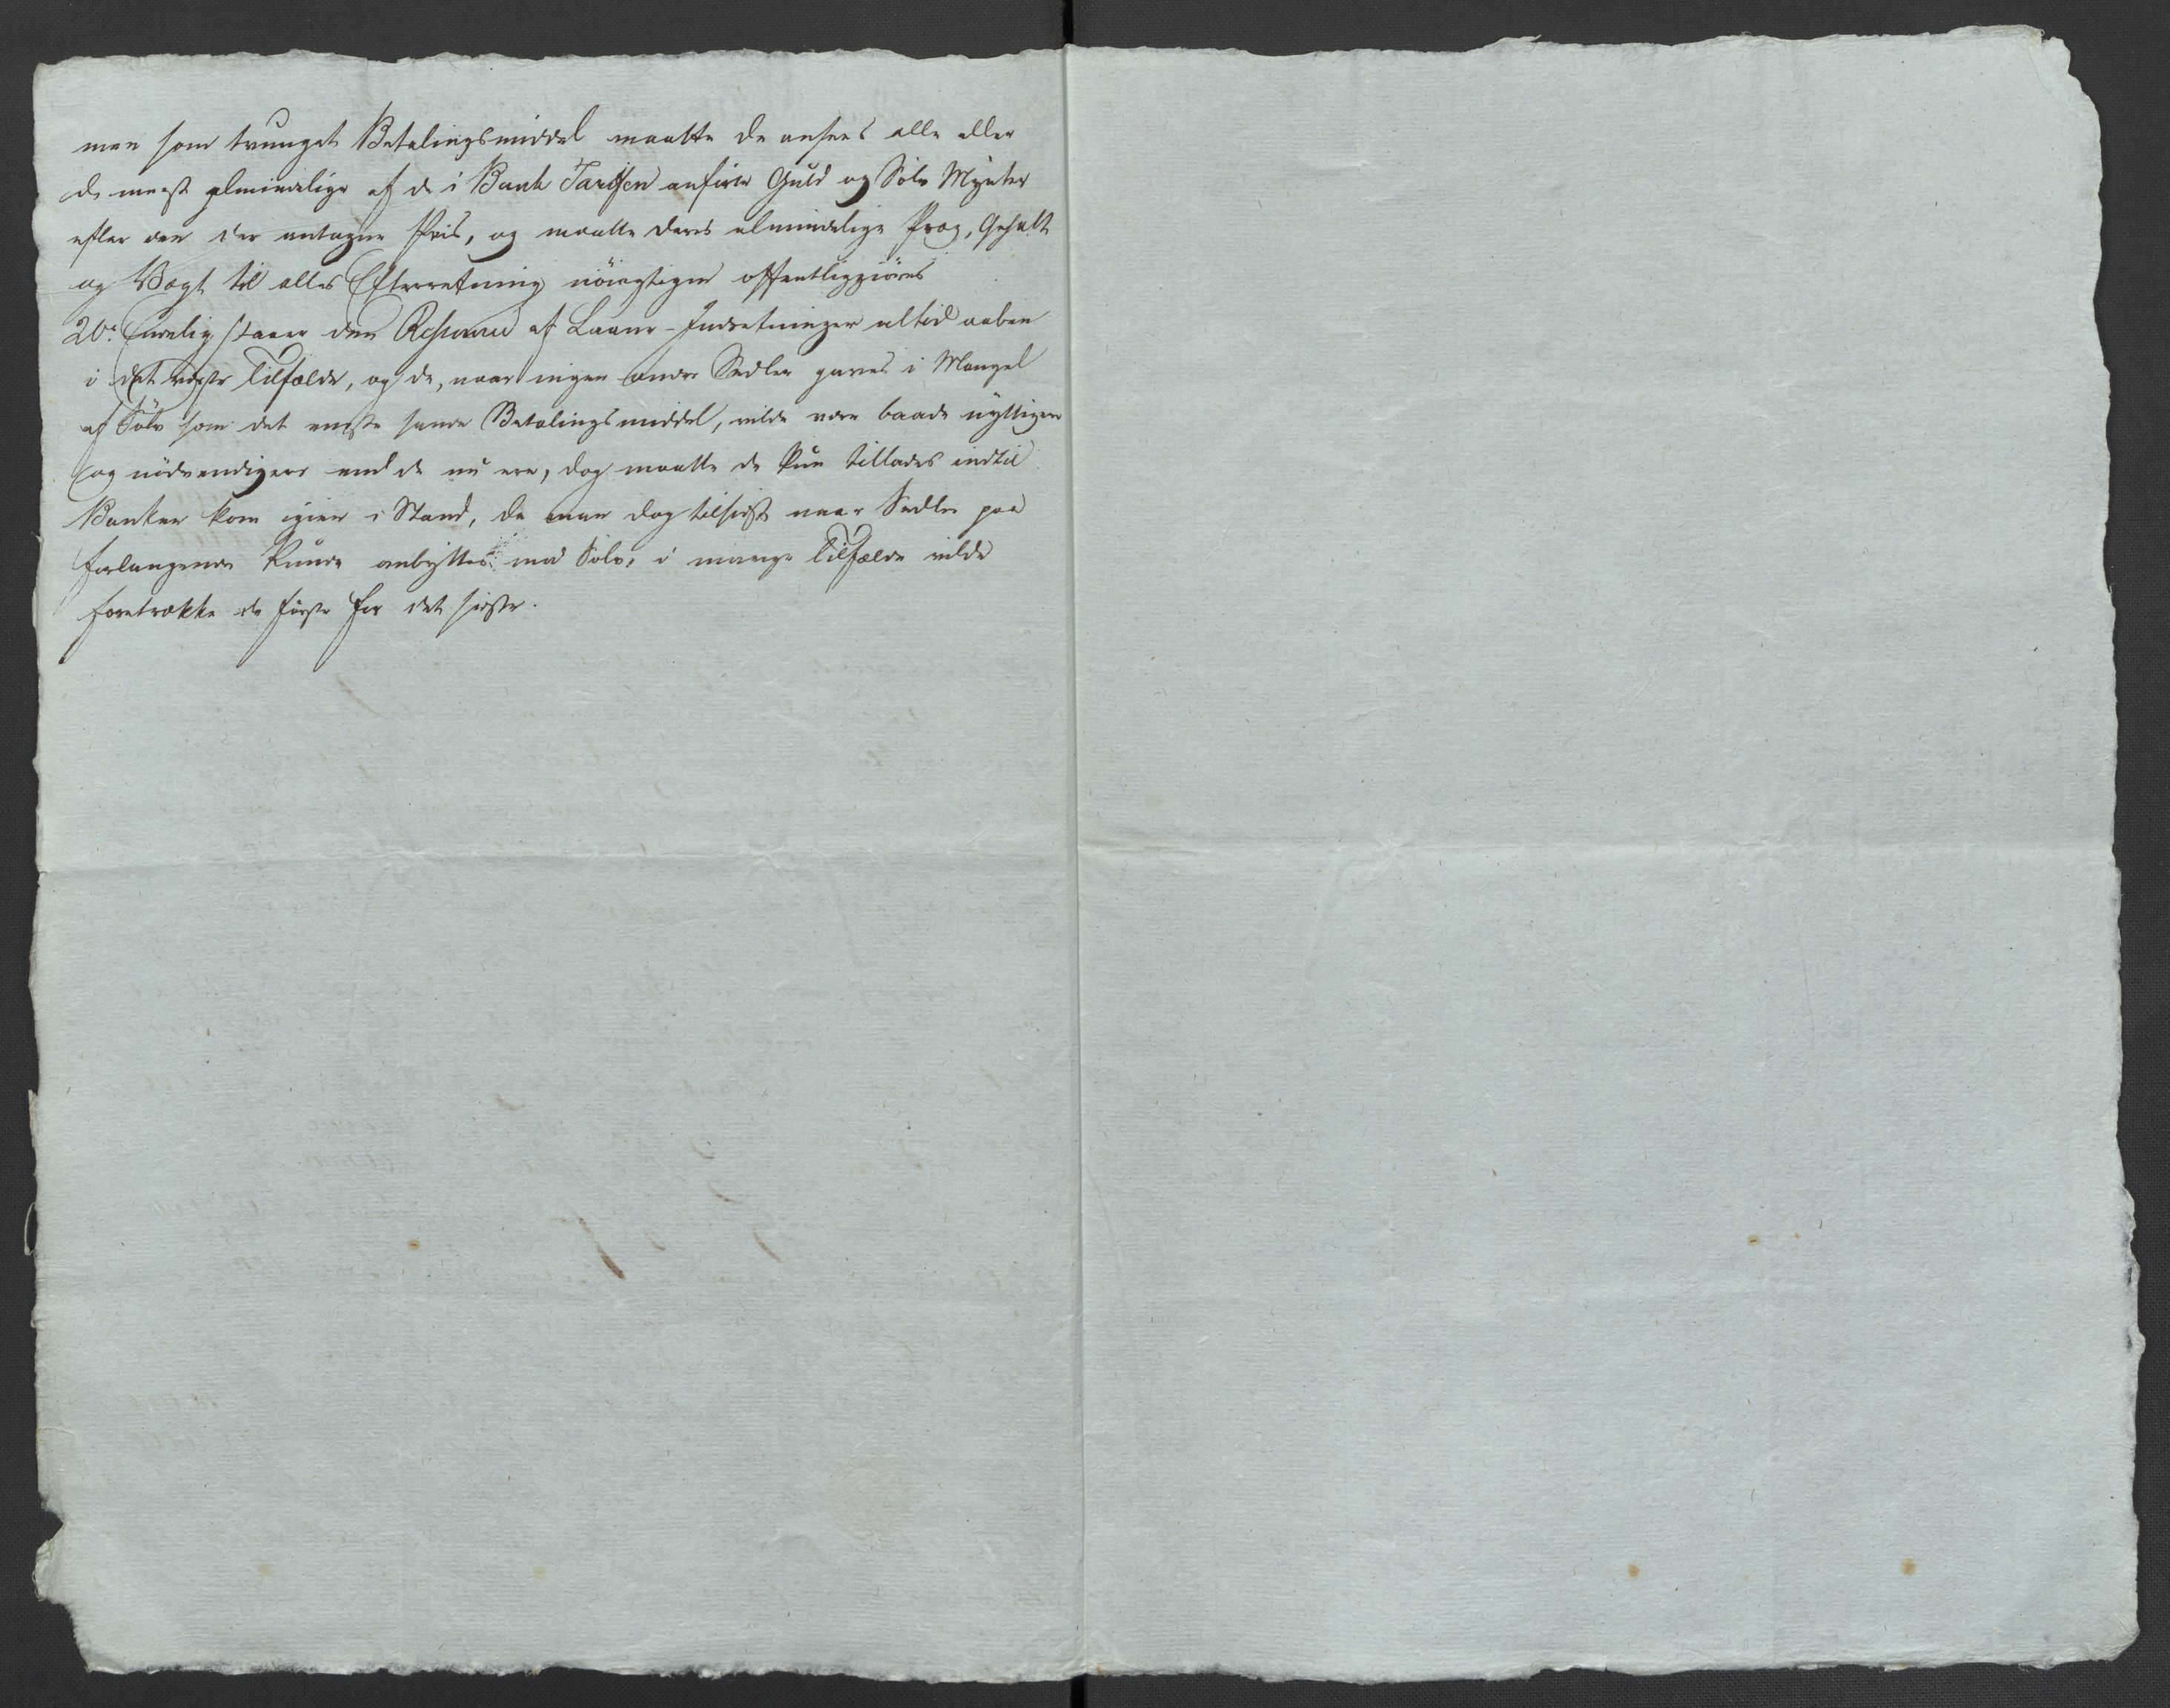 men som tvunget Betalingsmiddel maatte de ansees alle eller
de meest almindelige af de i Bank Tariffen anførte Guld og Sølv Mynter
efter den der antagne Priis, og maatte deres almindelige Præg, Gehalt
og Vægt til alles Efterretning nöiagtigen offentliggiöres
20. Endelig staaer den Ressource af Laane-Indretninger altid aaben
i det værste Tilfælde, og de, naar ingen andre Sedler gaves i Mangel
af Sölv som det eneste sande Betalingsmiddel, vilde være baade nyttigere
og nödvendigere end de nu ere, dog maatte de kun tillades indtil
Banken kom igien i Stand, da man dog tilsidst naar Sedler paa
forlangende kunde ombyttes med Sölv, i mange Tilfælde vilde
foretrække de förste for det sidste.